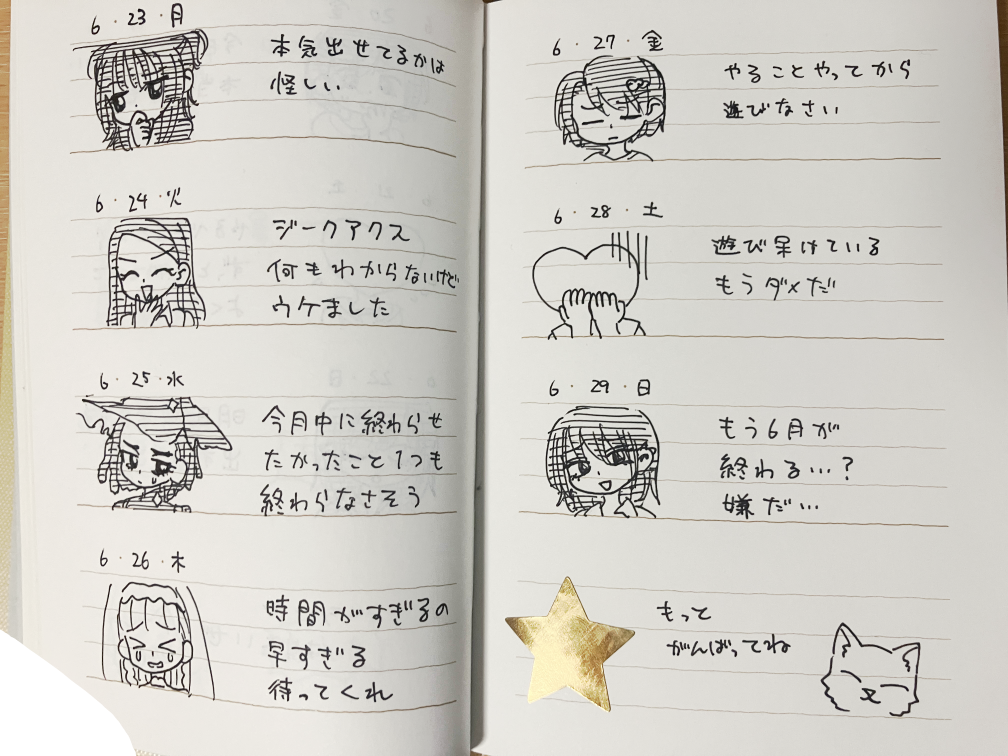 6・23・月
本気出せてるかは
怪しい
6・24・火
ジークアクス
何もわからないけど
ウケました
6・25・水
今月中に終わらせ
たかったこと1つも
終わらなさそう
6・26・木
時間がすぎるの
早すぎる
待ってくれ
6・27・金
やることやってから
遊びなさい
6・28・土
遊び呆けている
もうダメだ
6・29・日
もう6月が
終わる…?
嫌だ…
もっと
がんばってね